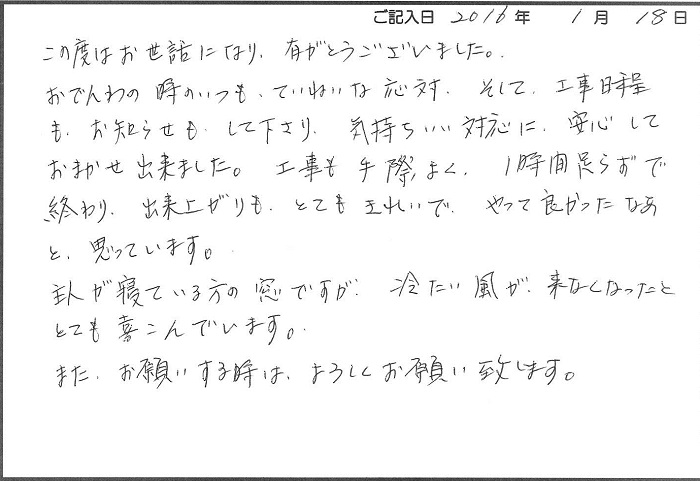 ご記入日 2016年 1月 18日
この度はお世話になり、有がとうございました。
おでんわの時のいつも、ていねいな応対、そして、工事日程
も、お知らせも、して下さり、気持ちいい対応に、安心して
おまかせ出来ました。工事も手際よく、1時間足らずで
終わり、出来上がりも、とてもきれいで、やって良かったなあ
と、思っています。
主人が寝ている方の窓ですが、冷たい風が、来なくなったと
とても喜こんでいます。
また、お願いする時は、よろしくお願い致します。